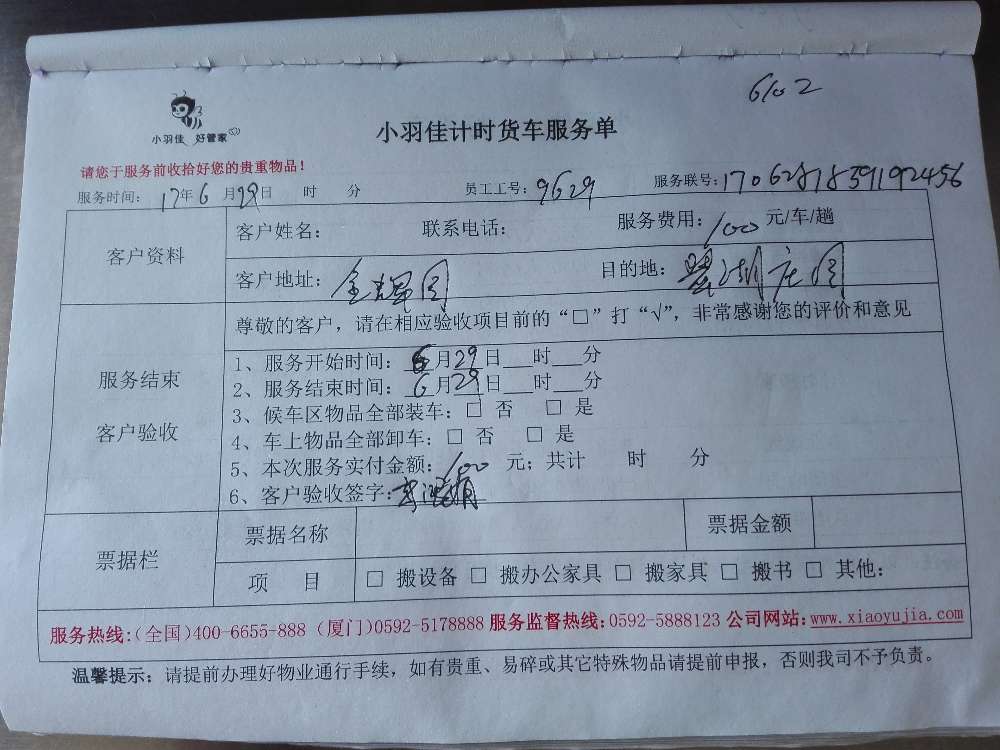 6102
小羽佳 好管家
小羽佳计时货车服务单
请您于服务前收拾好您的贵重物品！
服务时间： 17年6月29日 时 分 员工工号：9629 服务联号：
客户资料
客户姓名： 联系电话： 服务费用：100元/车/趟
客户地址：金辉园 目的地：
尊敬的客户，请在相应验收项目前的“□”打“√”，非常感谢您的评价和意见
服务结束
客户验收
1、服务开始时间：6月29日___时___分
2、服务结束时间：6月29日___时___分
3、候车区物品全部装车：□ 否 □ 是
4、车上物品全部卸车：□ 否 □ 是
5、本次服务实付金额：100 元；共计 时 分
6、客户验收签字：
票据栏
票据名称 票据金额
项 目 □ 搬设备 □ 搬办公家具 □ 搬家具 □ 搬书 □ 其他：
服务热线：（全国）400-6655-888（厦门）0592-5178888 服务监督热线：0592-5888123 公司网站：www.xiaoyujia.com
温馨提示：请提前办理好物业通行手续，如有贵重、易碎或其它特殊物品请提前申报，否则我司不予负责。